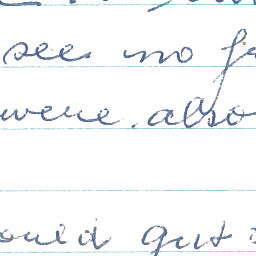 see no
were also
ould gut